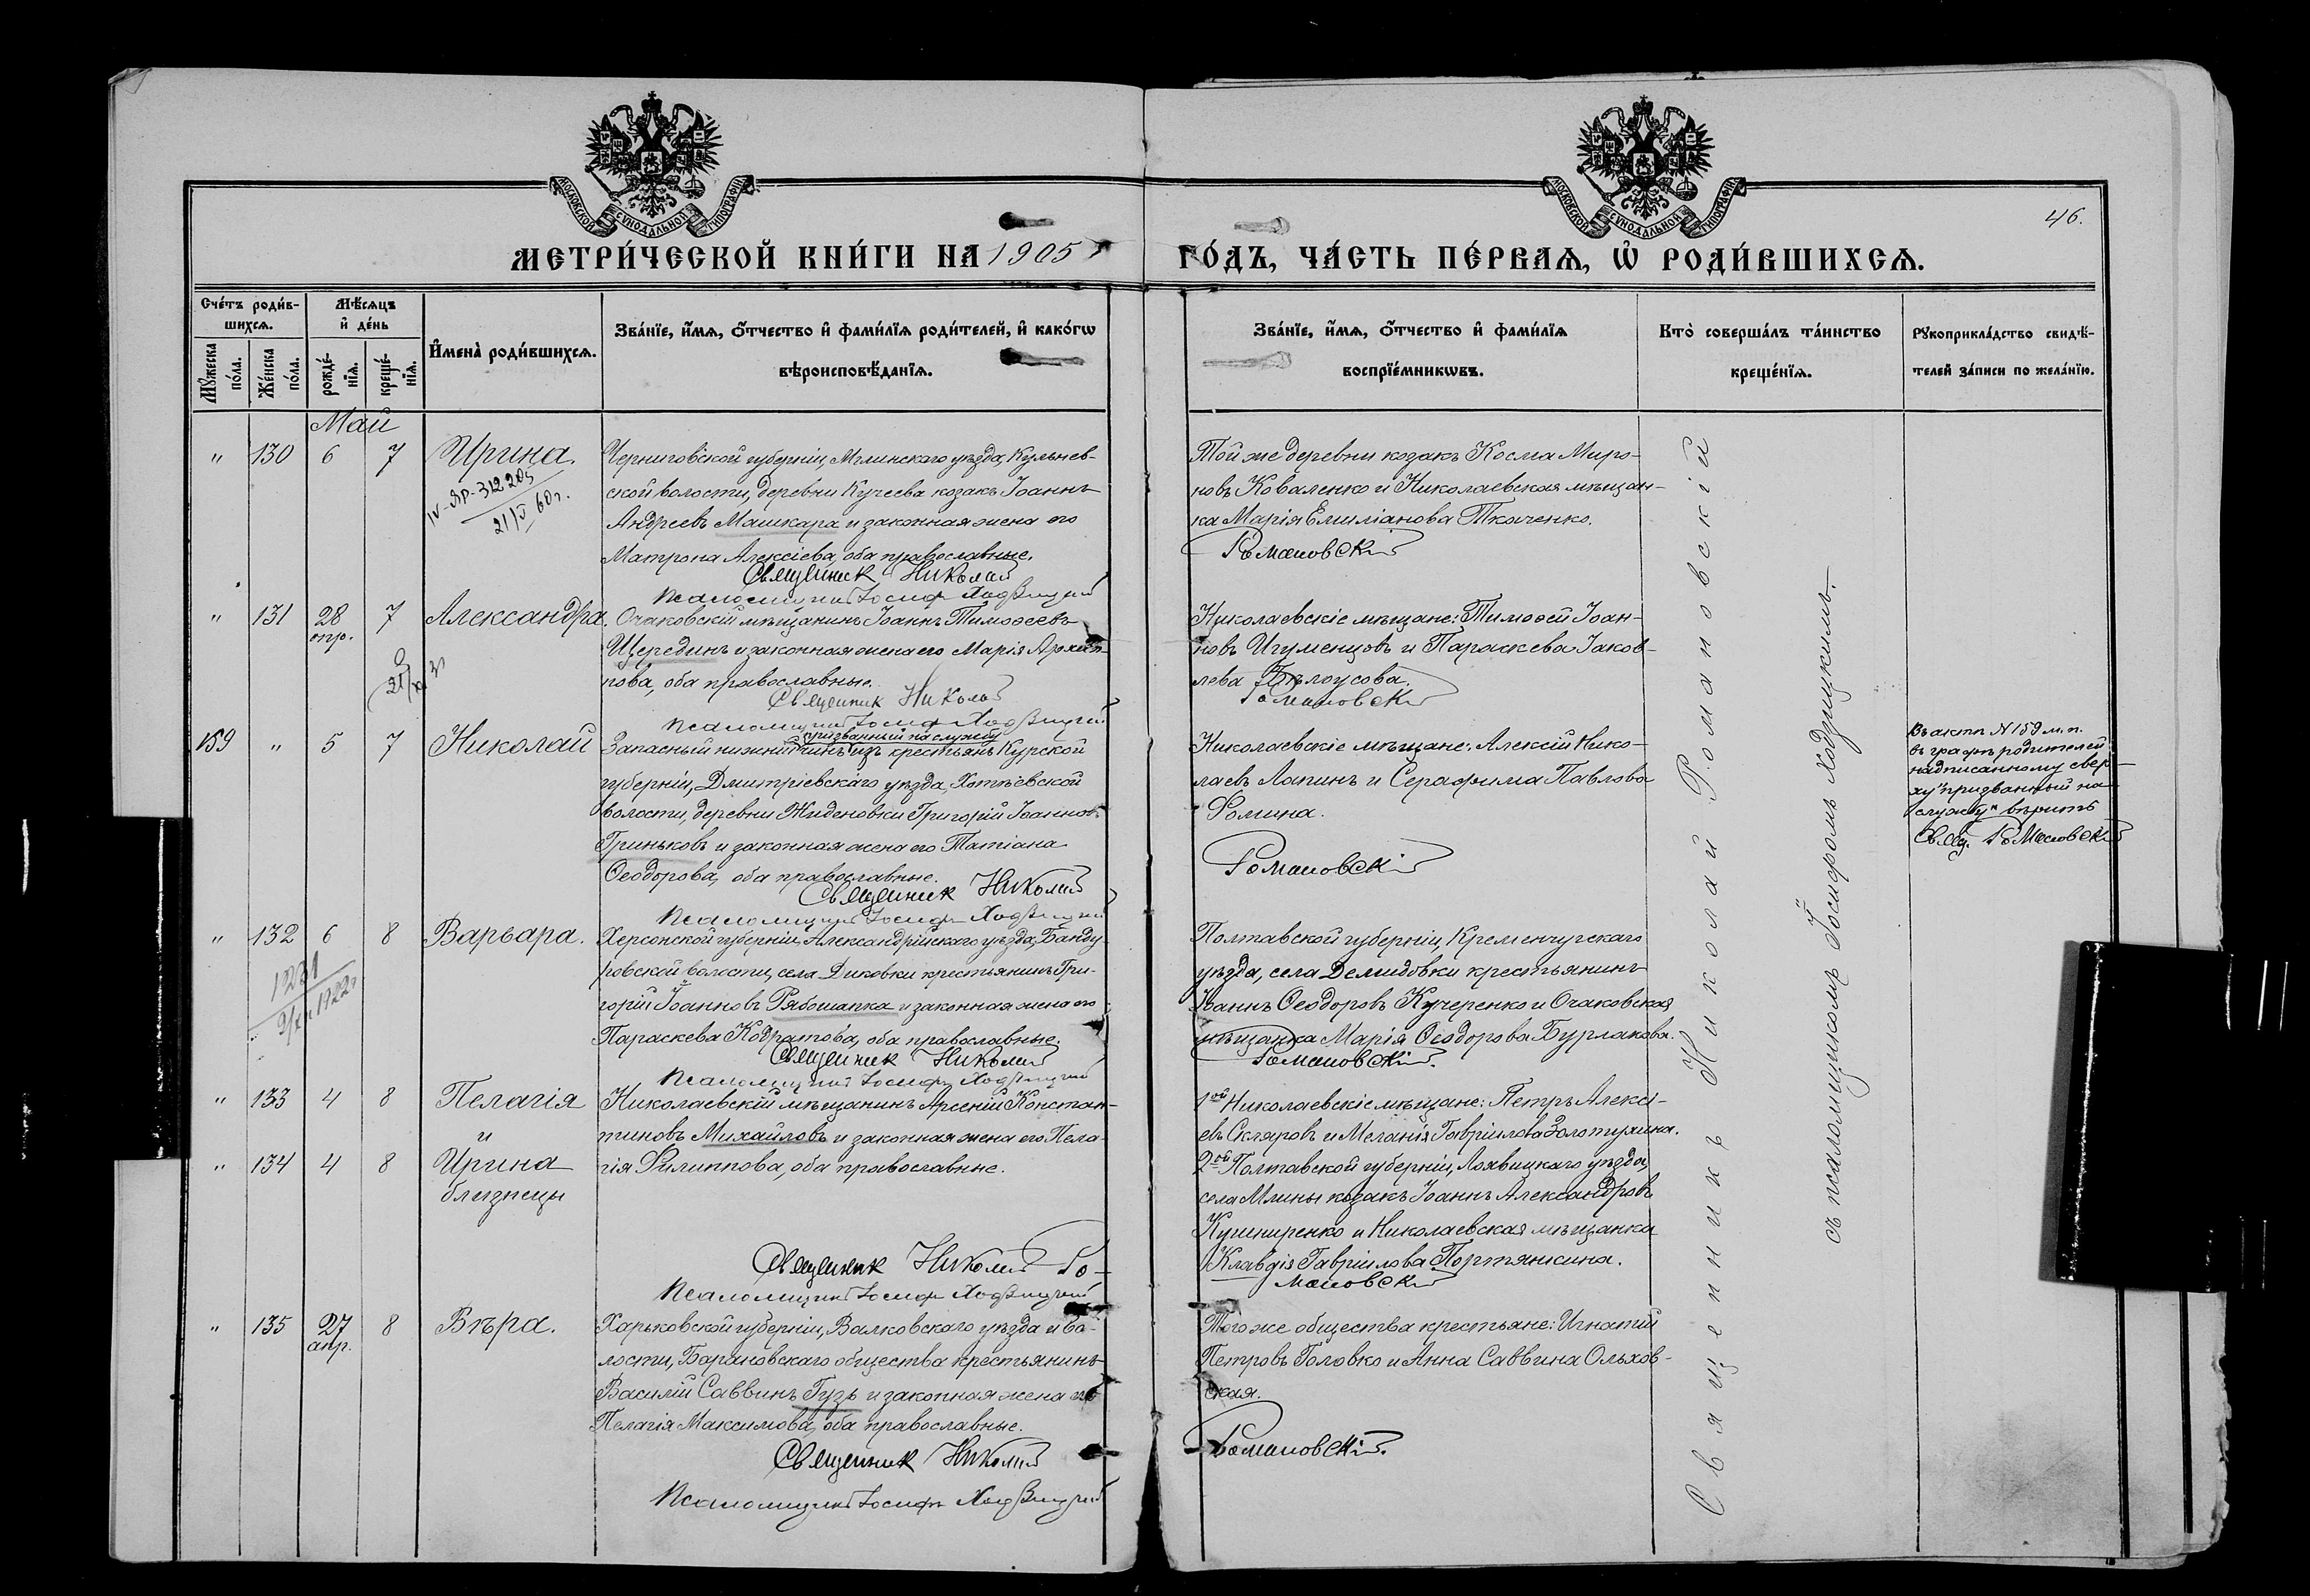 МОСКОВСКОЙ СѴНОДАЛЬНОЙ ТИПОГРАФІИ
МОСКОВСКОЙ СѴНОДАЛЬНОЙ ТИПОГРАФІИ
46.
МЕТРИ́ЧЕСКОЙ КНИ́ГИ НА 1905 ГО́ДЪ, ЧА́СТЬ ПЕ́РВАЯ, Ѡ҆ РОДИ́ВШИХСЯ.
Сче́тъ роди́в-
шихся.
Мѣ́сяцъ
и҆ де́нь
Мꙋ́жеска по́ла.
Же́нска по́ла.
рожде́-
нїя.
креще́-
нїя.
И҆мена̀ роди́вшихся.
Зва́нїе, и҆́мя, ѻ҆́тчество и҆ фами́лїя роди́телей, и҆ како́гѡ
вѣроисповѣ́данїя.
Зва́нїе, и҆́мя, ѻ҆́тчество и҆ фами́лїя
воспрїе́мникѡвъ.
Кто̀ соверша́лъ та́инство
креще́нїя.
Рꙋкоприкла́дство свидѣ́-
телей за́писи по жела́нїю.
Май
" 130 6 7 Ирина.
IV-ЯР-312205
21/V 60г.
Черниговской губерніи, Мглинскаго уѣзда, Кульнев-
ской волости, деревни Кучеева козакъ Іоаннъ
Андреевъ Машкара и законная жена его
Матрона Алексіева, оба православные.
Священник Николай
Псаломщикъ Іосифъ Ходзицкій
Той же деревни козакъ Косма Миро-
новъ Коваленко и Николаевская мѣщан-
ка Марія Емиліанова Ткаченко.
Романовскій
" 131 28 апр. 7 Александра.
Очаковскій мѣщанинъ Іоаннъ Тимоѳеевъ
Щерединъ и законная жена его Марія Архип-
пова, оба православные.
Священник Николай
Псаломщикъ Іосифъ Ходзицкій
Николаевскіе мѣщане: Тимоѳей Іоан-
новъ Игуменцовъ и Параскева Іаков-
лева Бѣлоусова.
Романовскій
159 " 5 7 Николай
призванный на службу
Запасный нижній чинъ изъ крестьянъ Курской
губерніи, Дмитріевскаго уѣзда, Хотѣевской
волости, деревни Жиденовки Григорій Іоанновъ
Гриньковъ и законная жена его Татіана
Ѳеодорова, оба православные.
Священник Николай
Псаломщикъ Іосифъ Ходзицкій
Николаевскіе мѣщане: Алексій Нико-
лаевъ Лапинъ и Серафима Павлова
Фомина.
Романовскій
Въ актѣ N 159 м. п.
въ графѣ родителей
надписанному свер-
ху "призванный на
службу" вѣрить
Свящ. Романовскій
" 132 6 8 Варвара.
Херсонской губерніи, Александрійскаго уѣзда, Банду-
ровской волости, села Диковки крестьянинъ Гри-
горій Іоанновъ Рябошапка и законная жена его
Параскева Кодратова, оба православные.
Священник Николай
Псаломщикъ Іосифъ Ходзицкій
Полтавской губерніи, Кременчугскаго
уѣзда, села Демидовки крестьянинъ
Іоаннъ Ѳеодоровъ Кучеренко и Очаковская
мѣщанка Марія Ѳеодорова Бурлакова.
Романовскій.
" 133 4 8 Пелагія
и
" 134 4 8 Ирина
близнецы
Николаевскій мѣщанинъ Арсеній Констан-
тиновъ Михайловъ и законная жена его Пела-
гія Филиппова, оба православные.
Священник Николай Ро-
Псаломщикъ Іосифъ Ходзицкій
1ой Николаевскіе мѣщане: Петръ Алексі-
евъ Скляровъ и Меланія Гавріилова Золотухина.
2ой Полтавской губерніи, Лохвицкаго уѣзда,
села Млины козакъ Іоаннъ Александровъ
Кушниренко и Николаевская мѣщанка
Клавдія Гавріилова Портянкина.
мановскій
" 135 27 апр. 8 Вѣра.
Харьковской губерніи, Валковскаго уѣзда и во-
лости, Барановскаго общества крестьянинъ
Василій Саввинъ Гузь и законная жена его
Пелагія Максимова, оба православные.
Священник Николай
Псаломщикъ Іосифъ Ходзицкій
Того же общества крестьяне: Игнатій
Петровъ Головко и Анна Саввина Ольхов-
ская.
Романовскій.
Священникъ Николай Романовскій
съ псаломщикомъ Іосифомъ Ходзицкимъ.